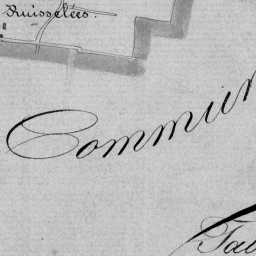 Ruisselées.
Commun
Tab